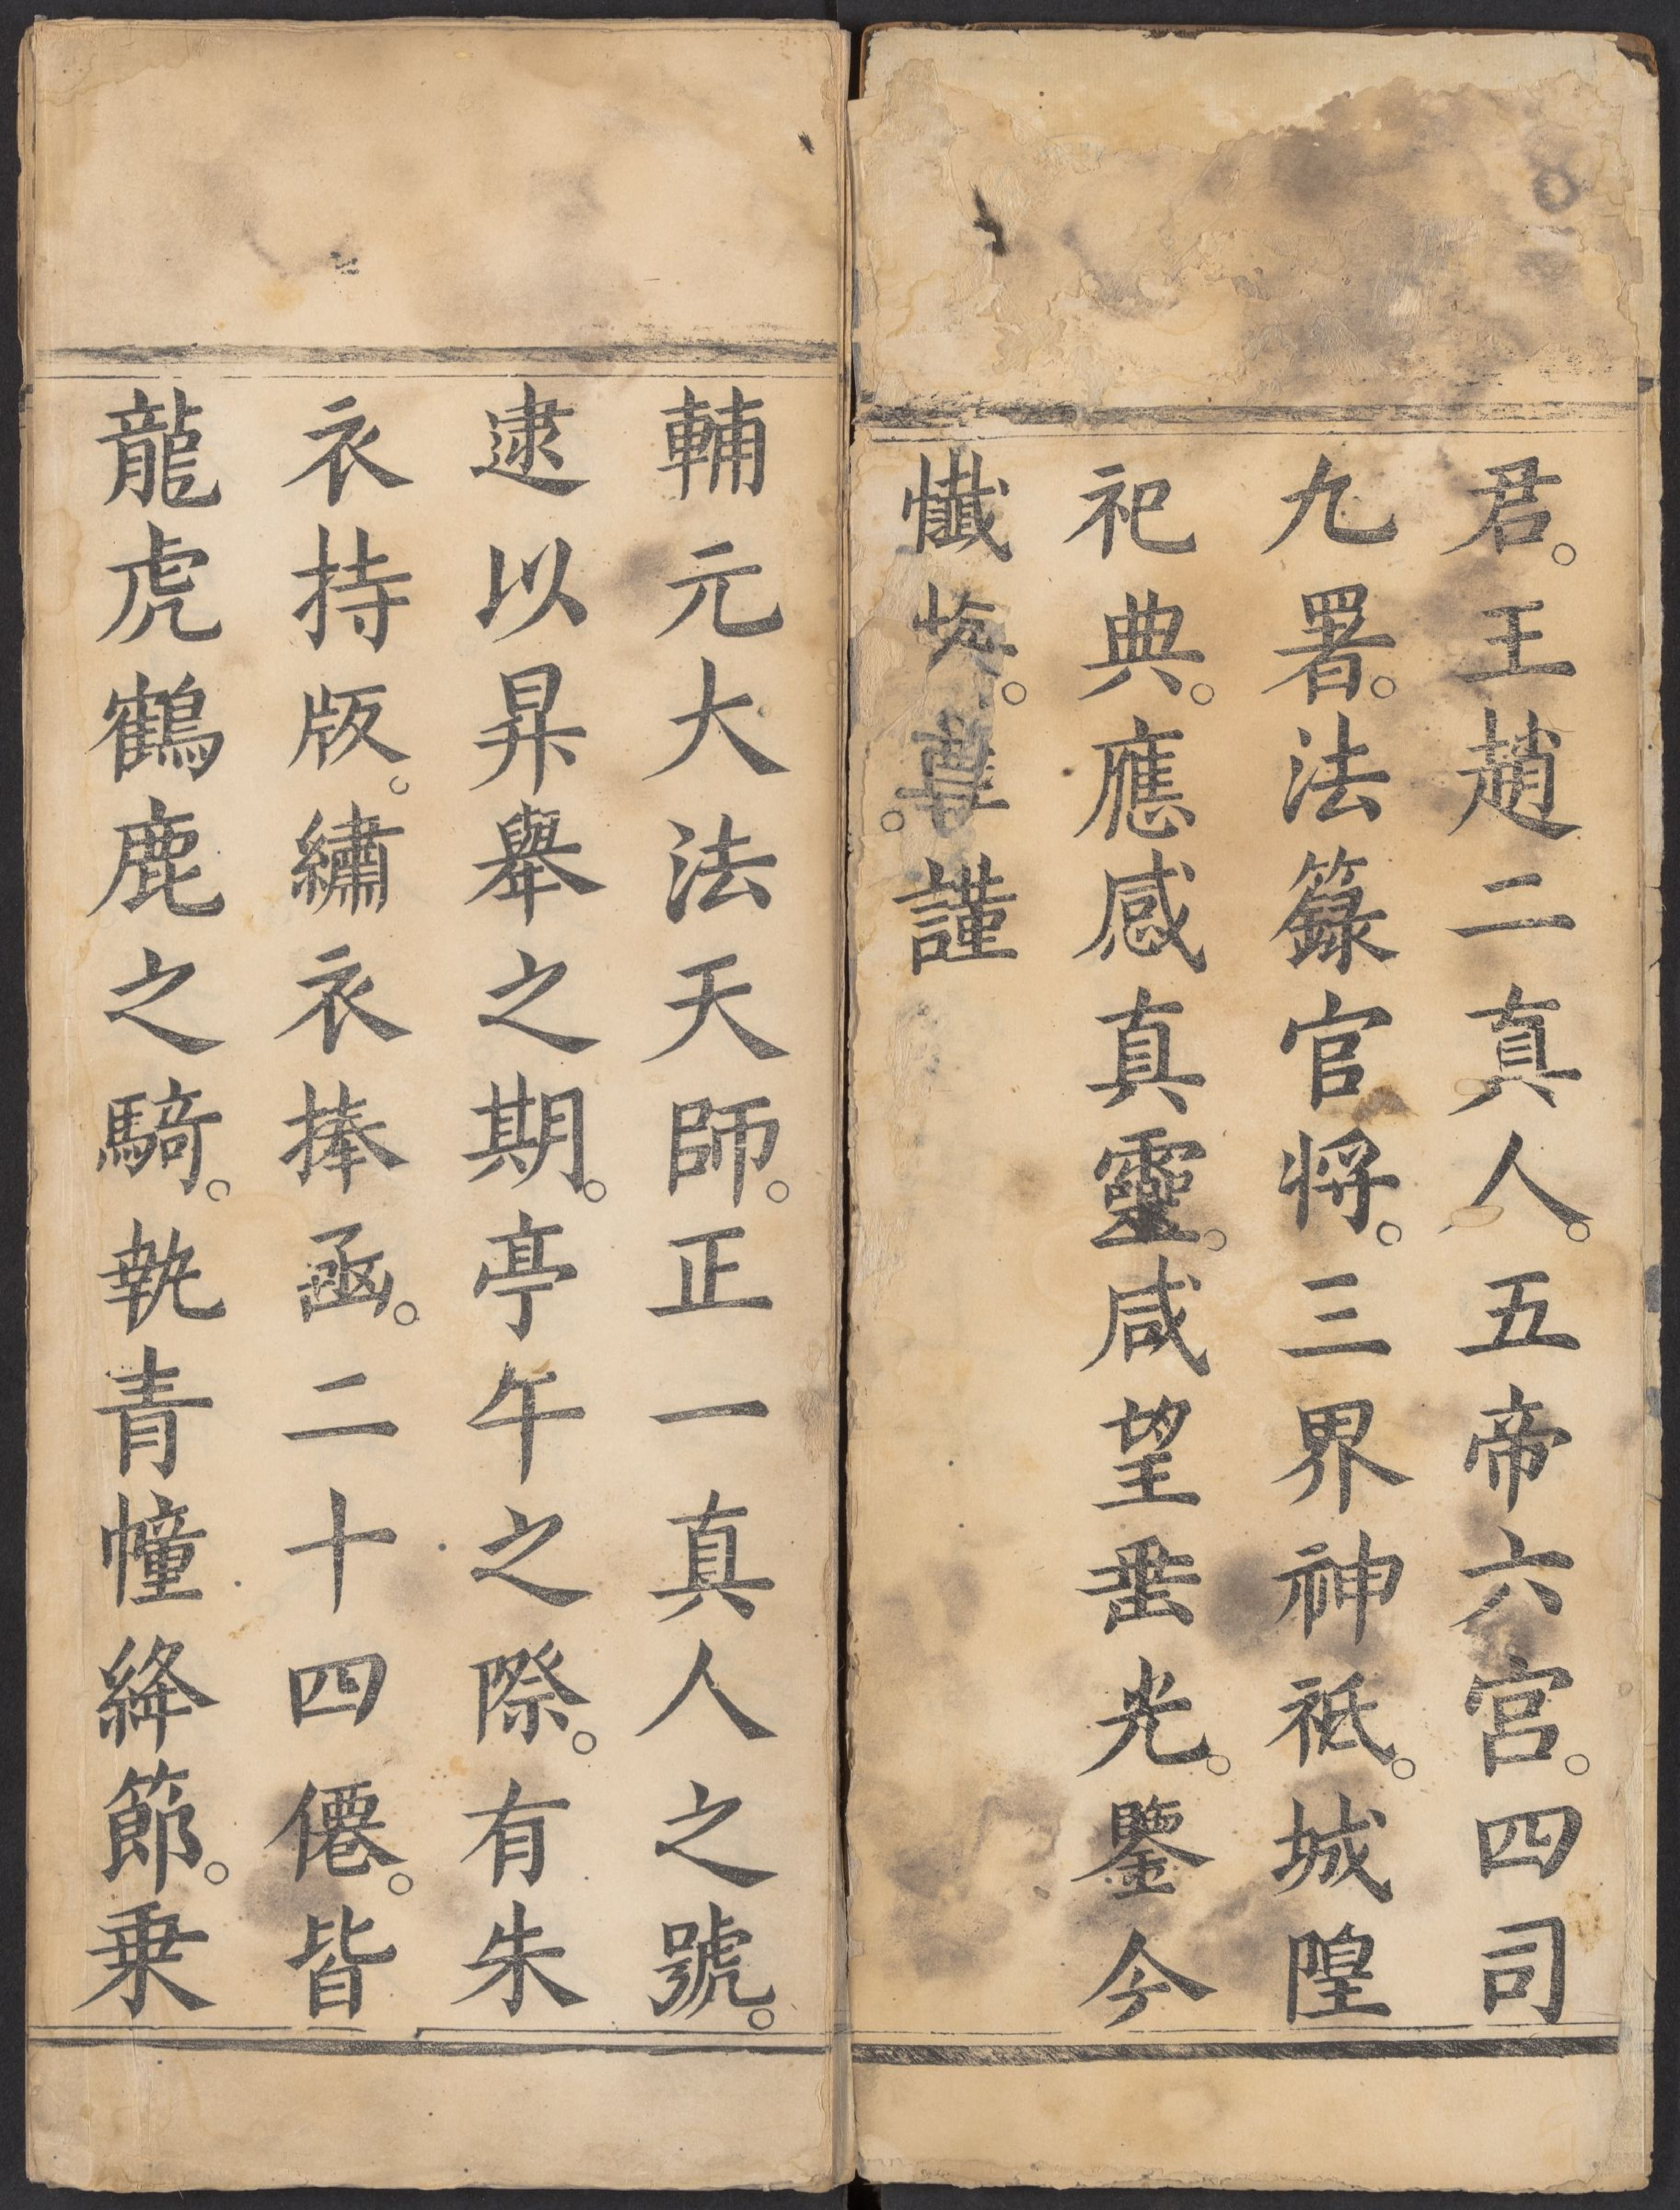 君。王趙二真人。五帝六宮。四司
九署。法籙官将。三界神祇。城隍
祀典。應感真靈。咸望垂光。鑒今
懺悔。尊。謹
輔元大法天師。正一真人之號。
逮以昇舉之期。亭午之際。有朱
衣持版。繡衣捧函。二十四僊。皆
龍虎鶴鹿之騎。執青幢絳節。乗